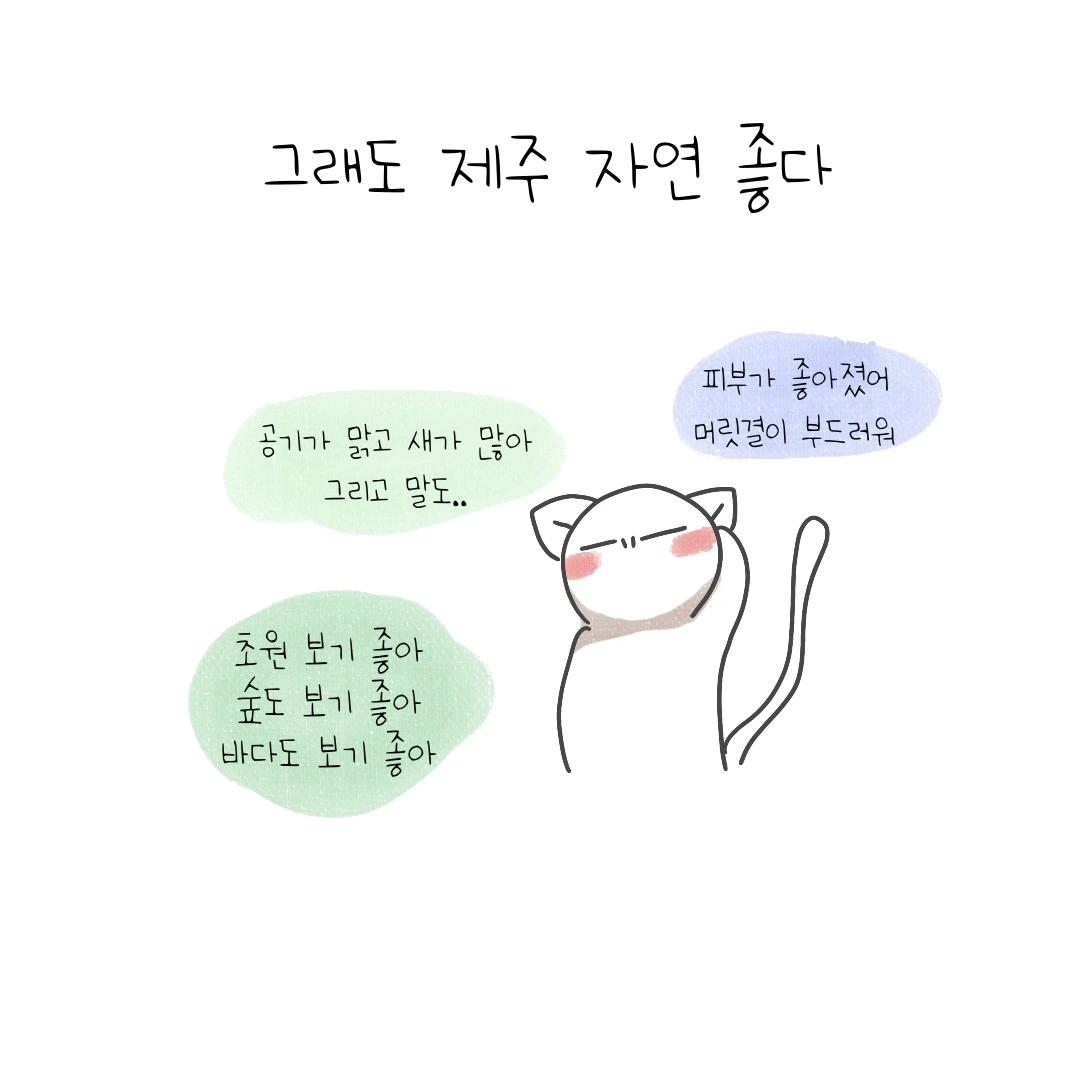 그래도 제주 자연 좋다
피부가 좋아졌어
머릿결이 부드러워
공기가 맑고 새가 많아
그리고 말도..
초원 보기 좋아
숲도 보기 좋아
바다도 보기 좋아